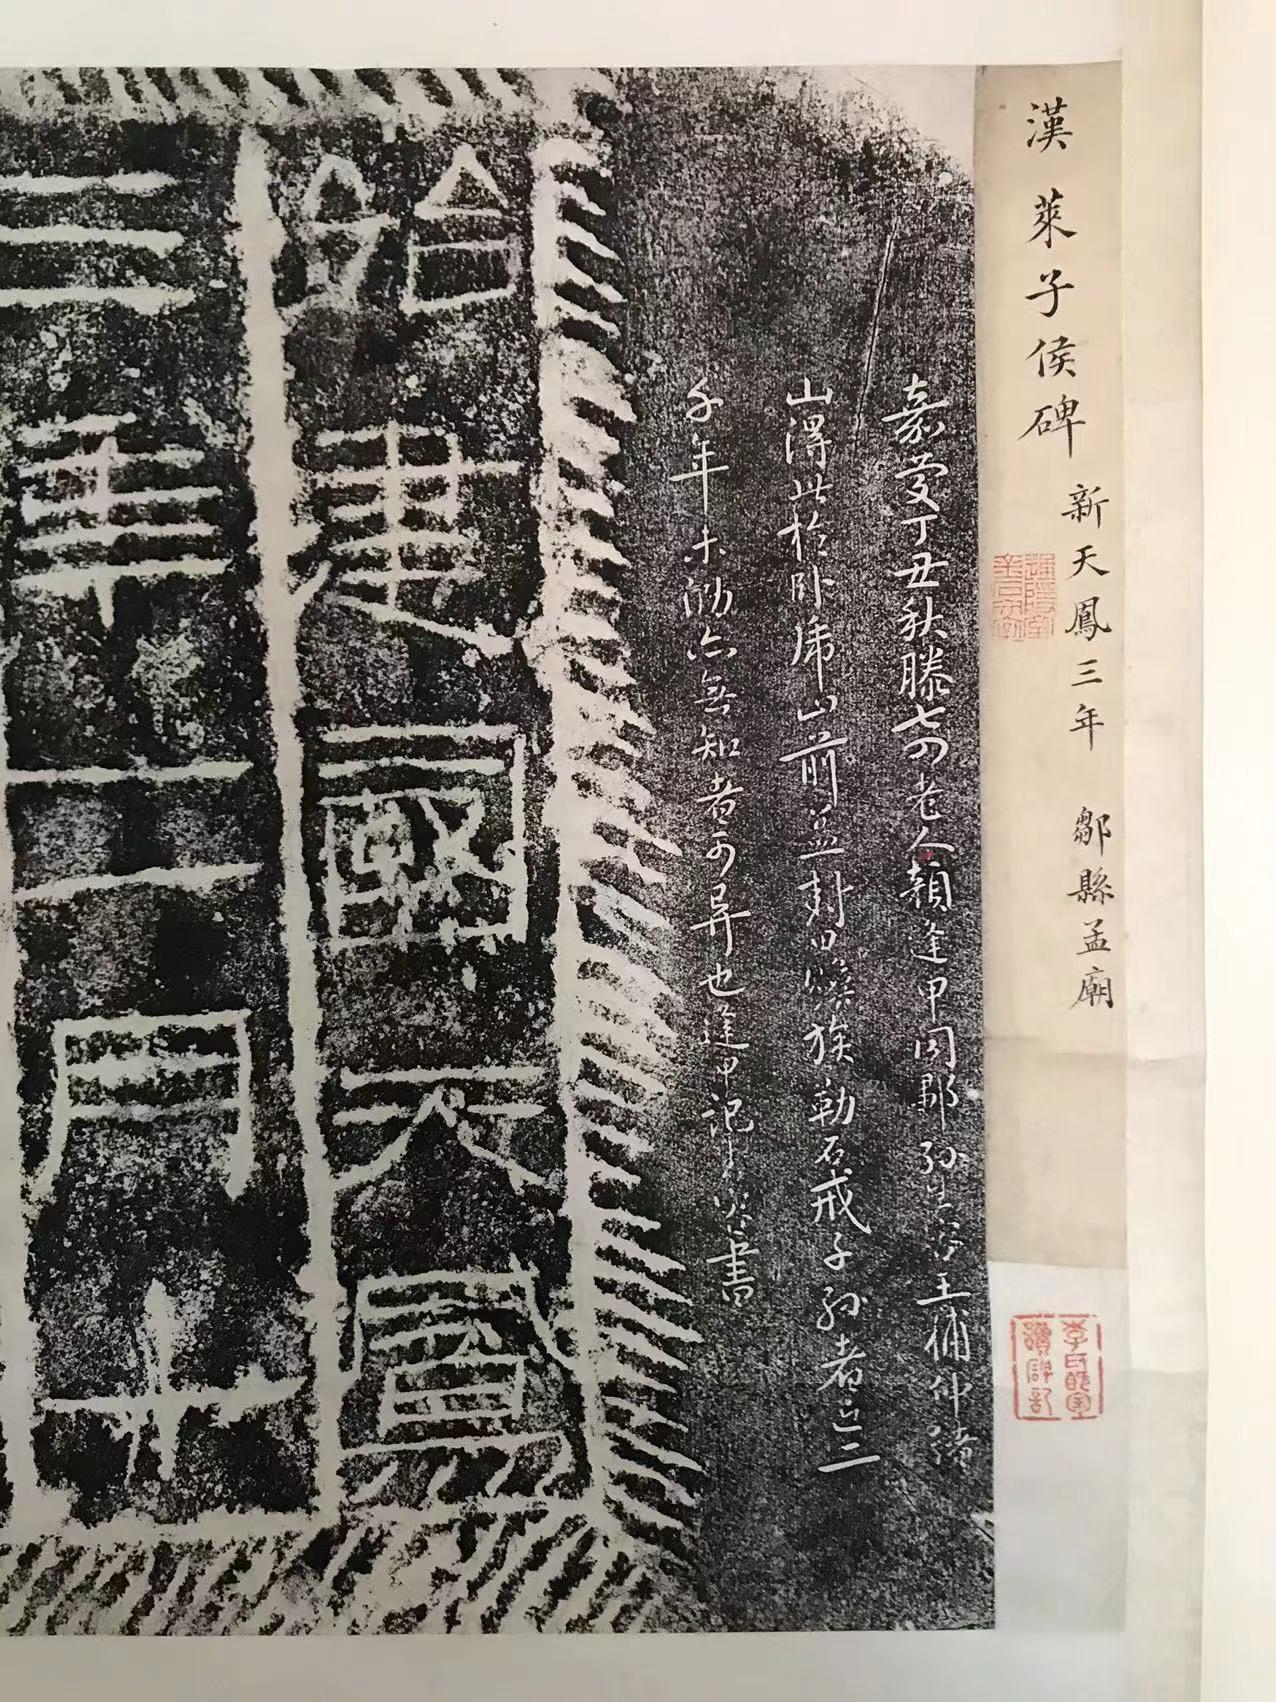 漢萊子侯碑
新天鳳三年 鄒縣孟廟
嘉慶丁丑秋滕七四老人顏逢甲同鄒孫生容王補仲緒
山得此於卧虎山前蓋封田贍族勒石戒子孫者近二
千年未泐亦無知者可异也逢甲記生容書
始建國天鳳
三年二月十
李氏
讀碑記